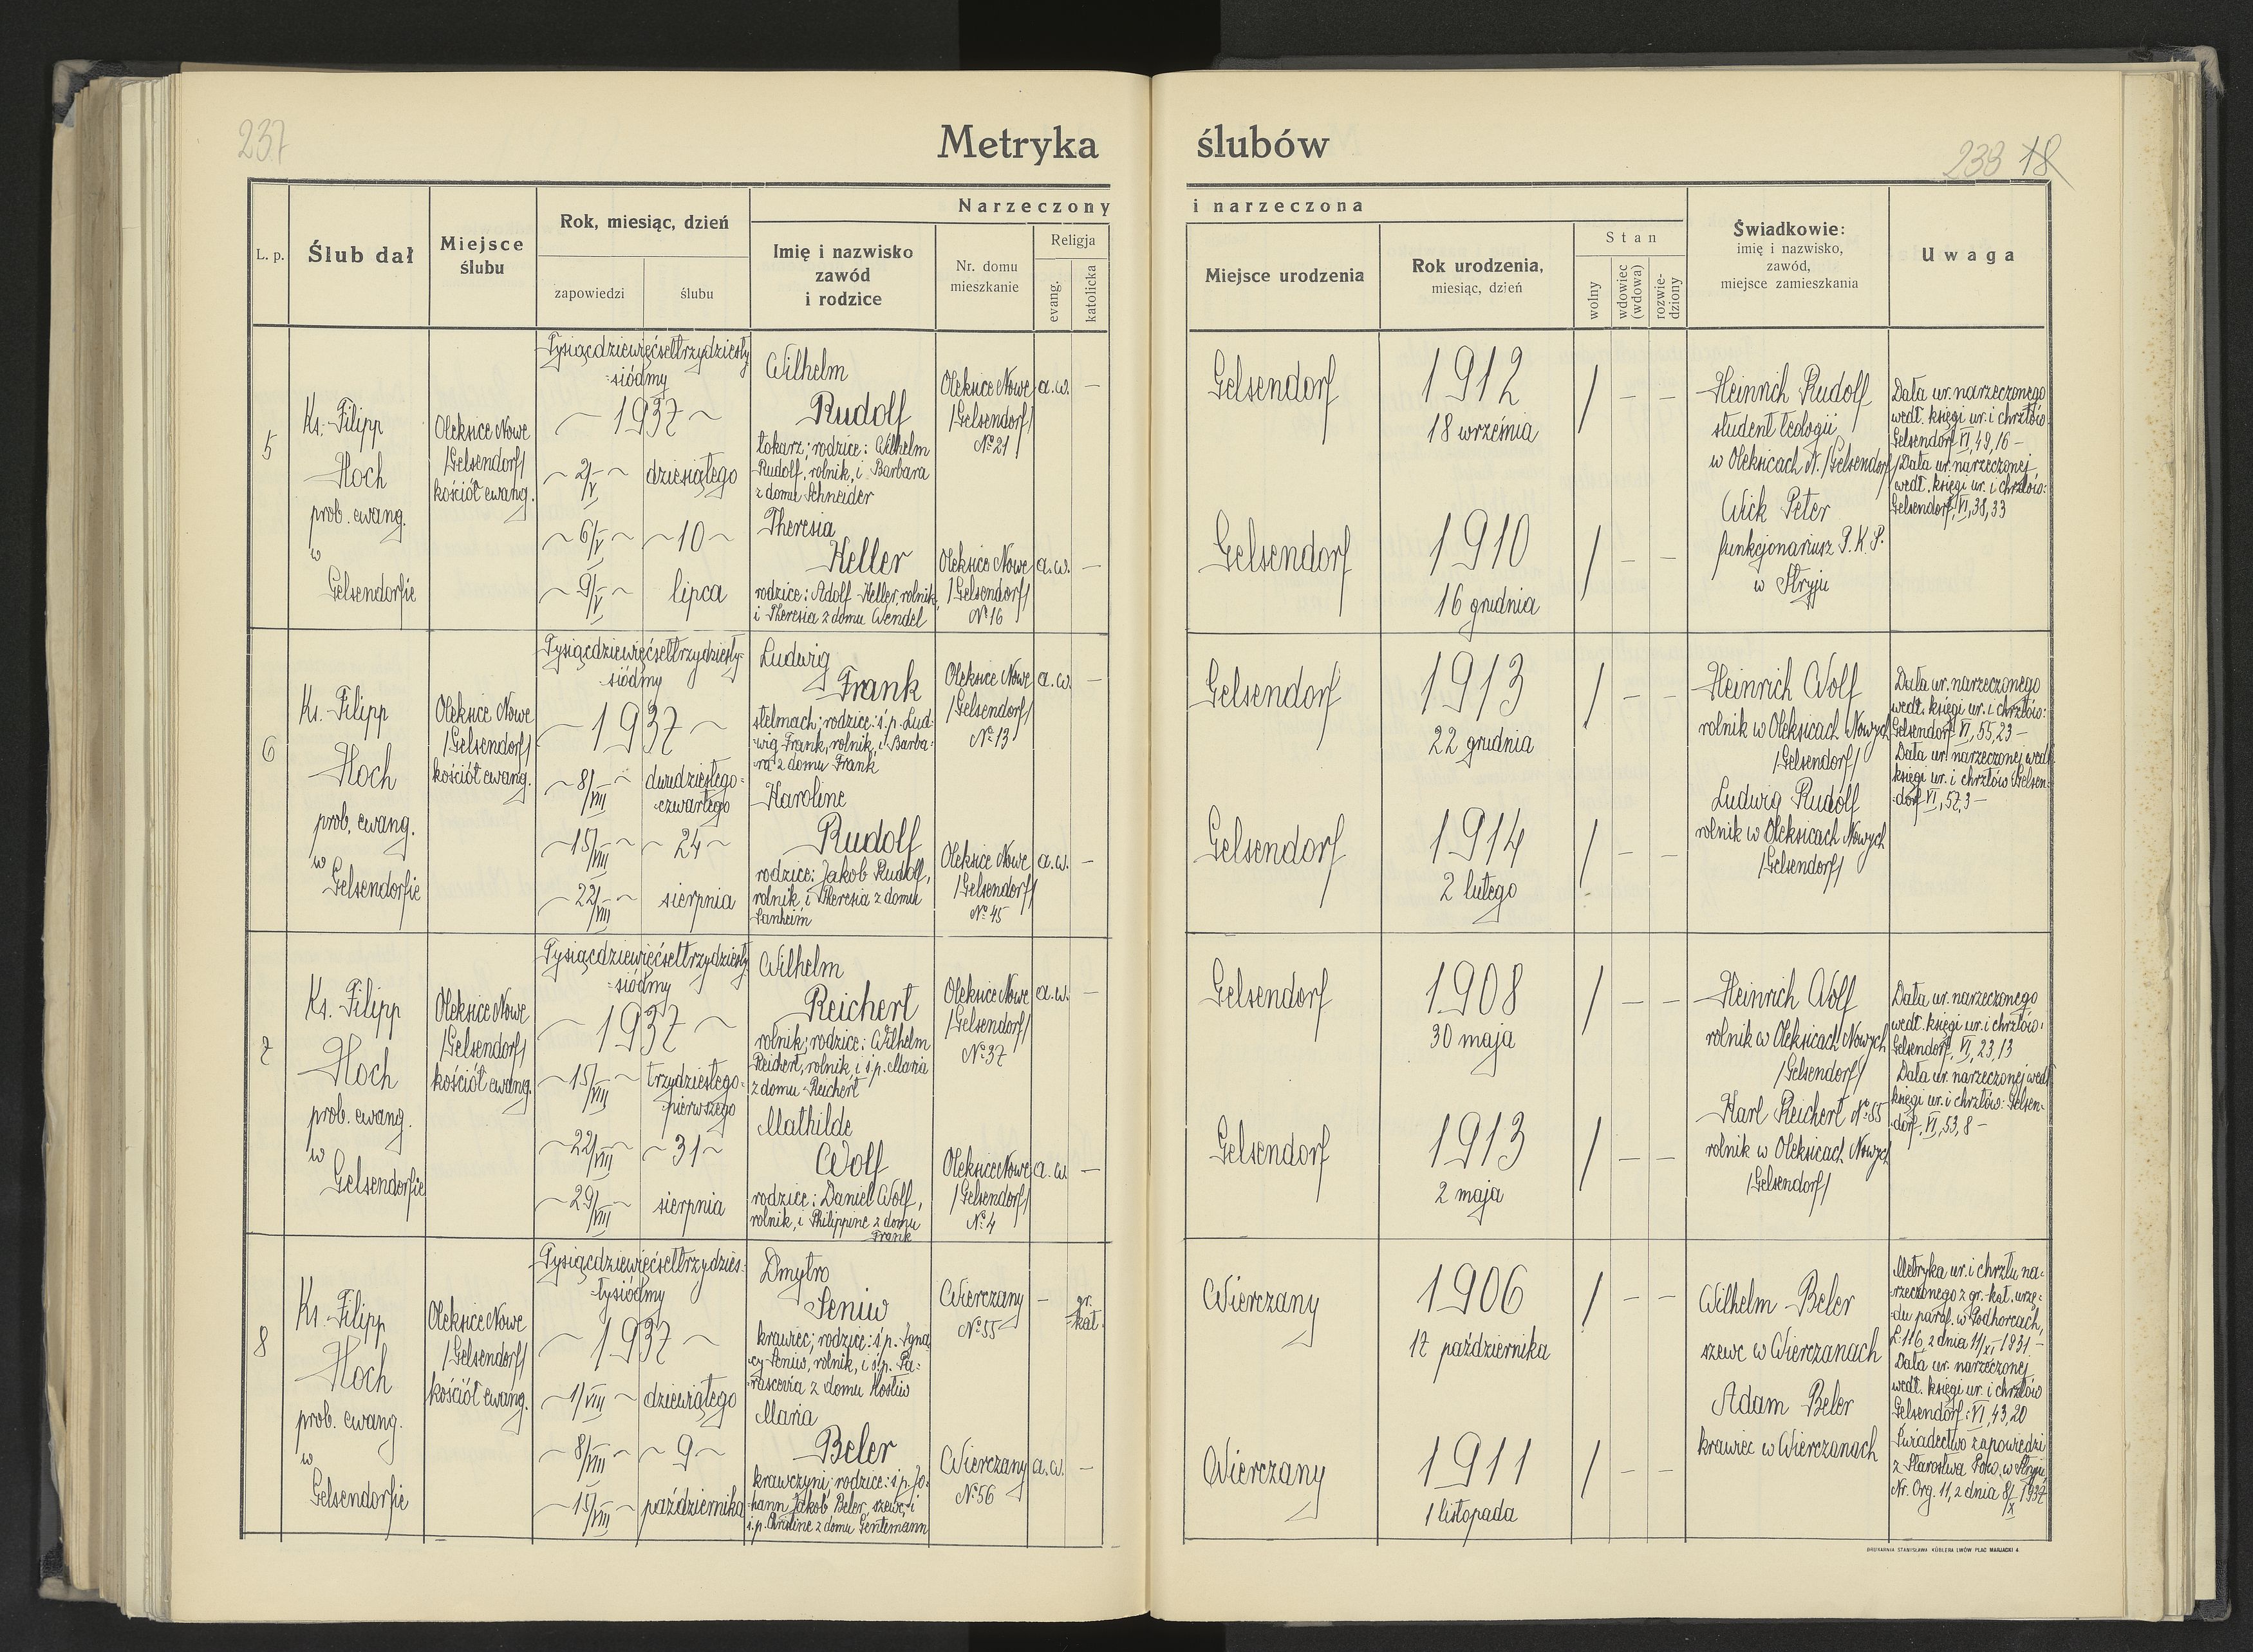 237
Metryka ślubów
238 18
Narzeczony i narzeczona
L. p.
Ślub dał
Miejsce
ślubu
Rok, miesiąc, dzień
zapowiedzi
ślubu
Imię i nazwisko
zawód
i rodzice
Nr. domu
mieszkanie
Religja
evang.
katolicka
Miejsce urodzenia
Rok urodzenia,
miesiąc, dzień
Stan
wolny
wdowiec
(wdowa)
rozwie-
dziony
Świadkowie:
imię i nazwisko,
zawód,
miejsce zamieszkania
Uwaga
5
Ks. Filipp
Hoch
prob. ewang.
w
Gelsendorfie
Oleksice Nowe
/Gelsendorf/
kościół ewang.
Tysiącdziewięćsettrzydziesty-
-siódmy
~ 1937 ~
~ 2/V ~
~ 6/V ~
~ 9/V ~
dziesiątego
~ 10 ~
lipca
Wilhelm
Rudolf
tokarz; rodzice: Wilhelm
Rudolf, rolnik, i Barbara
z domu Schneider
Oleksice Nowe
/Gelsendorf/
No 21
a.w.
—
Theresia
Keller
rodzice: Adolf Keller, rolnik,
i Theresia z domu Wendel
Oleksice Nowe
/Gelsendorf/
No 16
a.w.
—
Gelsendorf
1912
18 września
/ — —
Gelsendorf
1910
16 grudnia
/ — —
Heinrich Rudolf
student teologii
w Oleksicach N. /Gelsendorf/
Wick Peter
funkcjonariusz P.K.P.
w Stryju
Data ur. narzeczonego
wedł. księgi ur. i chrztów:
Gelsendorf VI, 49, 16 —
Data ur. narzeczonej
wedł. księgi ur. i chrztów:
Gelsendorf, VI, 38, 33
6
Ks. Filipp
Hoch
prob. ewang.
w
Gelsendorfie
Oleksice Nowe
/Gelsendorf/
kościół ewang.
Tysiącdziewięćsettrzydziesty-
-siódmy
~ 1937 ~
~ 8/VIII ~
~ 15/VIII ~
~ 22/VIII ~
dwudziestego-
-czwartego
~ 24 ~
sierpnia
Ludwig
Frank
stelmach; rodzice: ś.p. Lud-
-wig Frank, rolnik, i Barba-
-ra z domu Frank
Oleksice Nowe
/Gelsendorf/
No 13
a.w.
—
Karoline
Rudolf
rodzice: Jakob Rudolf,
rolnik, i Theresia z domu
Manheim
Oleksice Nowe
/Gelsendorf/
No 45
a.w.
—
Gelsendorf
1913
22 grudnia
/ — —
Gelsendorf
1914
2 lutego
/ — —
Heinrich Wolf
rolnik w Oleksicach Nowych
/Gelsendorf/
Ludwig Rudolf
rolnik w Oleksicach Nowych
/Gelsendorf/
Data ur. narzeczonego
wedł. księgi ur. i chrztów:
Gelsendorf VI, 55, 23 —
Data ur. narzeczonej wedł.
księgi ur. i chrztów Gelsen-
-dorf VI, 57, 3 —
7
Ks. Filipp
Hoch
prob. ewang.
w
Gelsendorfie
Oleksice Nowe
/Gelsendorf/
kościół ewang.
Tysiącdziewięćsettrzydziesty-
-siódmy
~ 1937 ~
~ 15/VIII ~
~ 22/VIII ~
~ 29/VIII ~
trzydziestego-
-pierwszego
~ 31 ~
sierpnia
Wilhelm
Reichert
rolnik; rodzice: Wilhelm
Reichert, rolnik, i ś.p. Maria
z domu Reichert
Oleksice Nowe
/Gelsendorf/
No 37
a.w.
—
Mathilde
Wolf
rodzice: Daniel Wolf,
rolnik, i Philippine z domu
Frank
Oleksice Nowe
/Gelsendorf/
No 4
a.w.
—
Gelsendorf
1908
30 maja
/ — —
Gelsendorf
1913
2 maja
/ — —
Heinrich Wolf
rolnik w Oleksicach Nowych
/Gelsendorf/
Karl Reichert No 55
rolnik w Oleksicach Nowych
/Gelsendorf/
Data ur. narzeczonego
wedł. księgi ur. i chrztów:
Gelsendorf, VI, 23, 13
Data ur. narzeczonej wedł.
księgi ur. i chrztów: Gelsen-
-dorf, VI, 53, 8 —
8
Ks. Filipp
Hoch
prob. ewang.
w
Gelsendorfie
Oleksice Nowe
/Gelsendorf/
kościół ewang.
Tysiącdziewięćsettrzydzies-
-tysiódmy
~ 1937 ~
~ 1/VIII ~
~ 8/VIII ~
~ 15/VIII ~
dziewiątego
~ 9 ~
października
Dmytro
Seniw
krawiec; rodzice: ś.p. Igna-
-cy Seniw, rolnik, i ś.p. Pa-
-rascevia z domu Kostiw
Wierczany
No 55
—
gr.
-kat.
Maria
Beler
krawczyni; rodzice: ś.p. Jo-
-hann Jakob Beler, szewc, i
ś.p. Christine z domu Gentemann
Wierczany
No 56
a.w.
—
Wierczany
1906
17 października
/ — —
Wierczany
1911
1 listopada
/ — —
Wilhelm Beler
szewc w Wierczanach
Adam Beler
krawiec w Wierczanach
Metryka ur. i chrztu na-
-rzeczonego z gr.-kat. urzę-
-du paraf. w Podhorcach,
L: 116, z dnia 11/XI 1931 —
Data ur. narzeczonej
wedł. księgi ur. i chrztów
Gelsendorf: VI, 43, 20
Świadectwo zapowiedzi
z Starostwa Pow. w Stryju,
Nr. Org. 11, z dnia 8/X 1937
DRUKARNIA STANISŁAWA KÜBLERA LWÓW PLAC MARJACKI 4